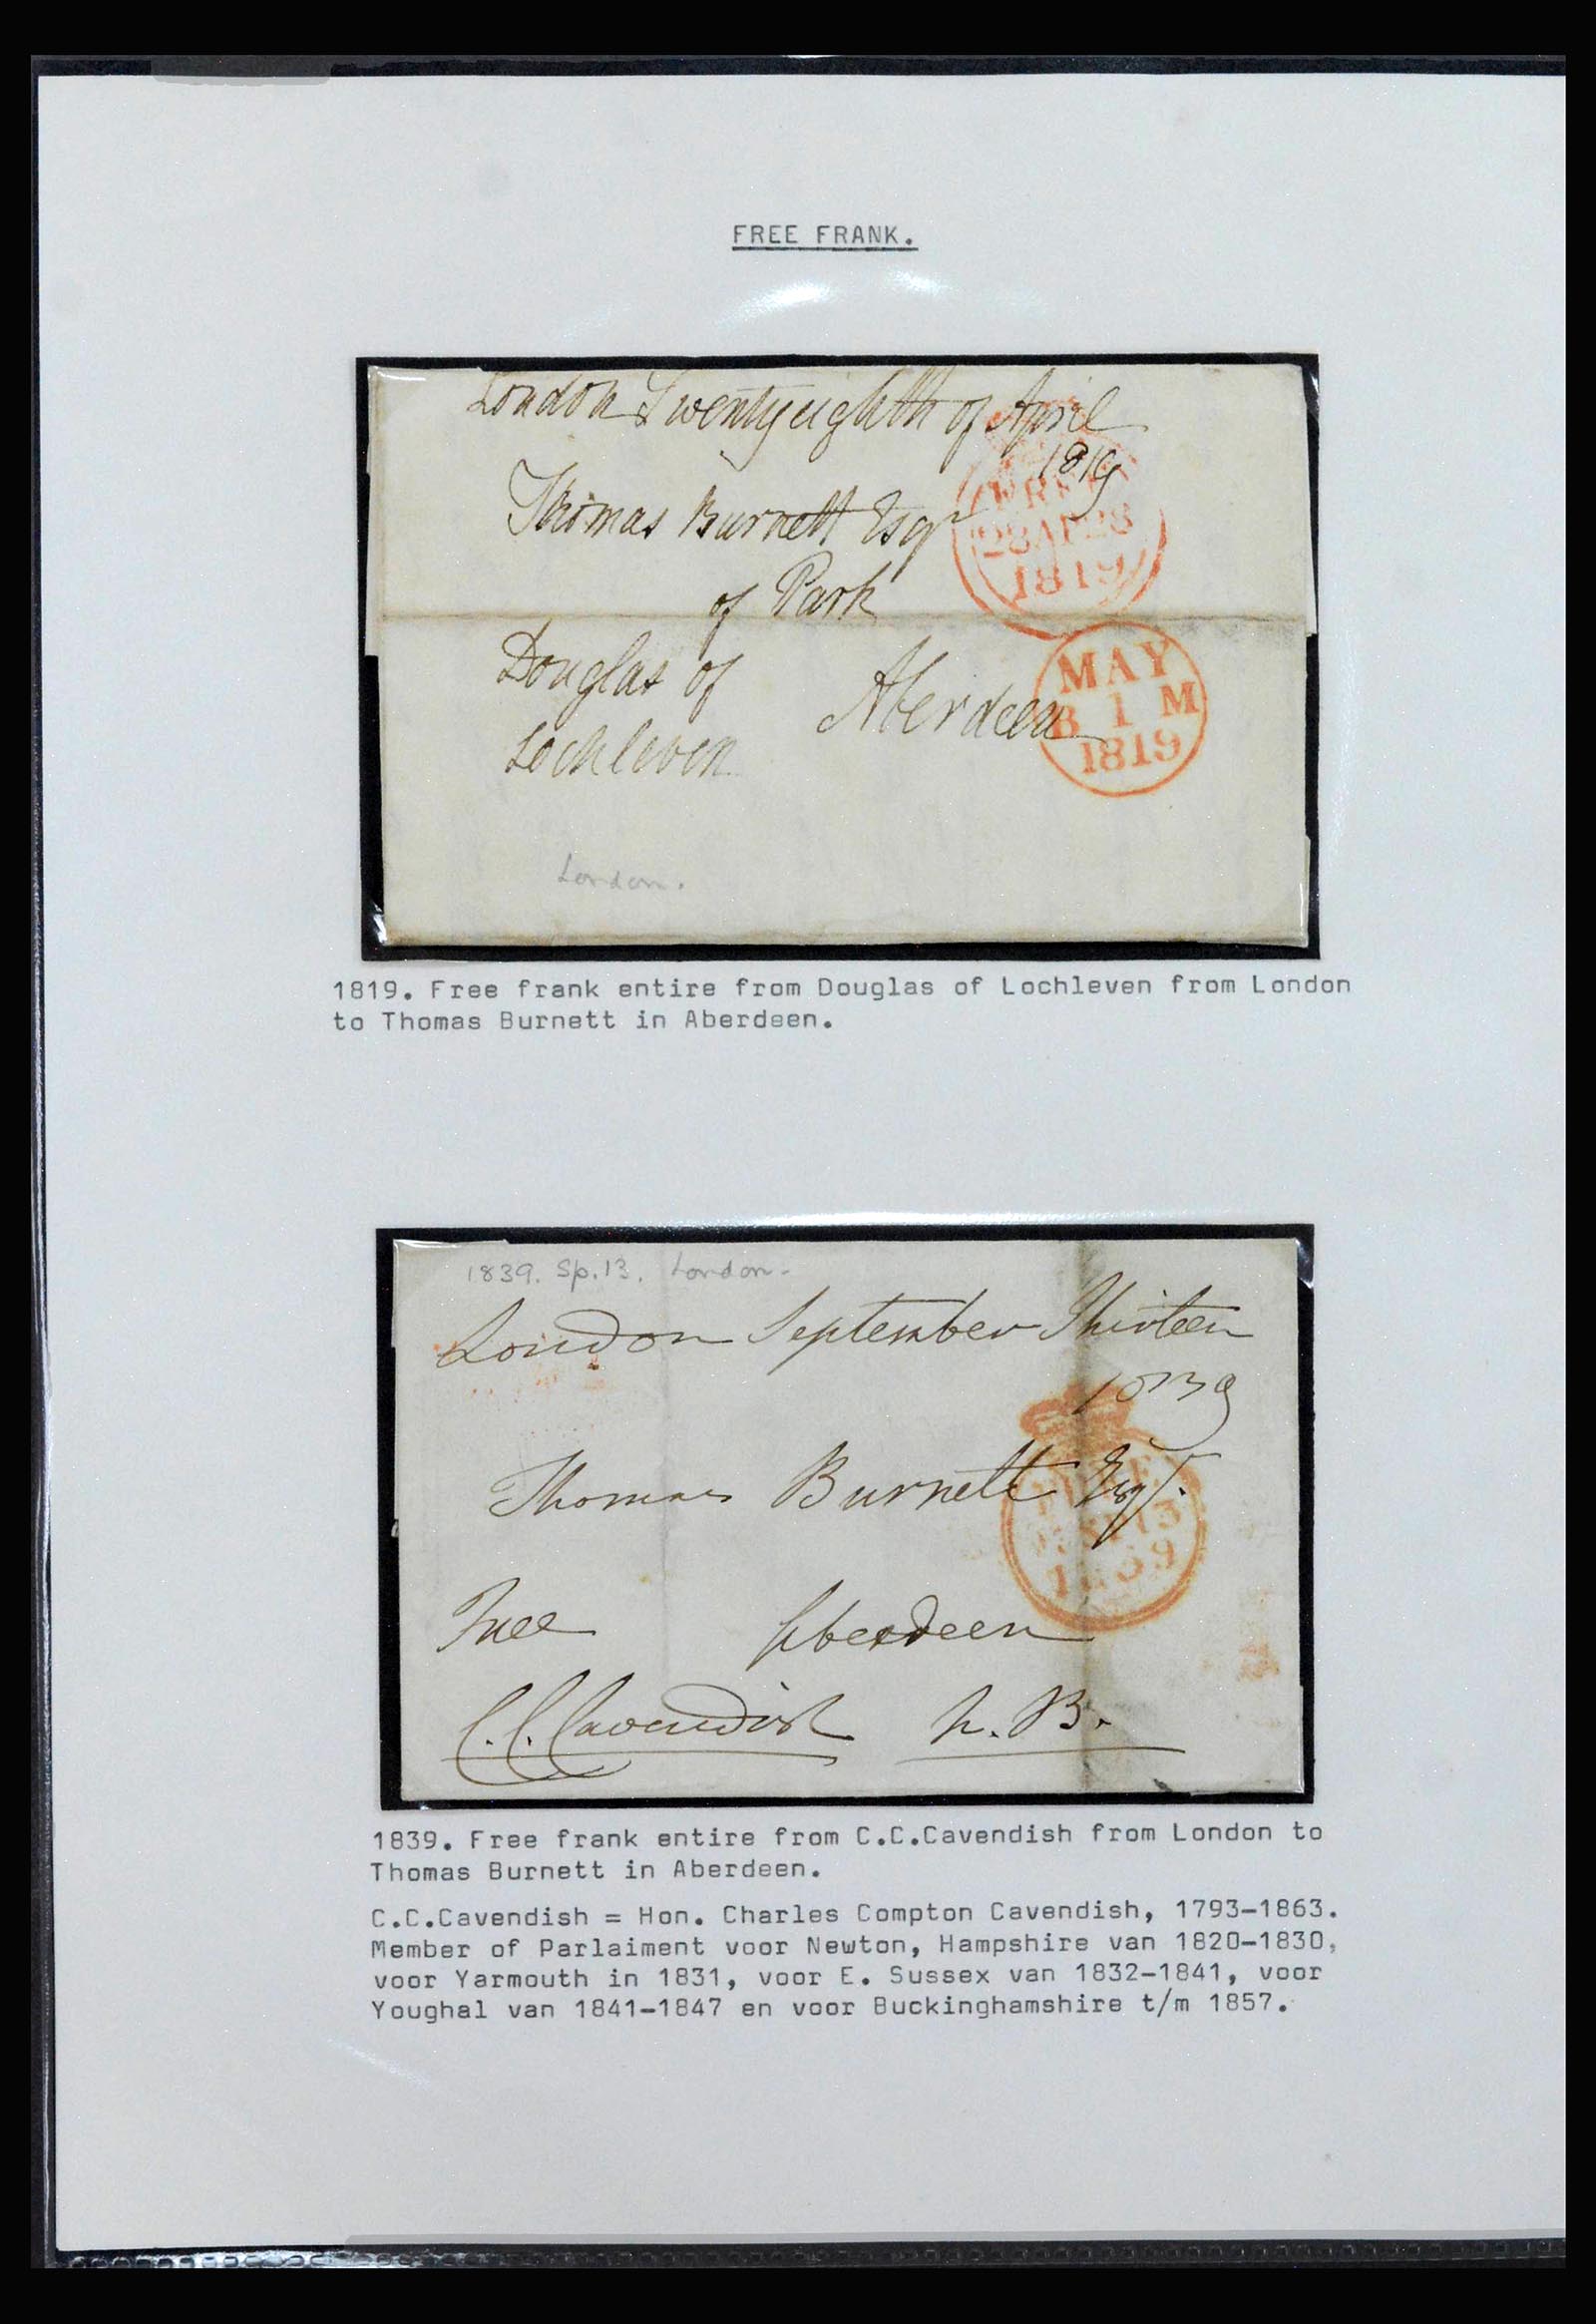 FREE FRANK.
London Twentyeighth of April
1819
Thomas Burnett Esqr
of Park
Douglas of
Aberdeen
Lochleven
FREE
28AP28
1819
MAY
B 1 M
1819
London.
1819. Free frank entire from Douglas of Lochleven from London
to Thomas Burnett in Aberdeen.
1839. Sp.13. London.
London September Thirteen
1839
Thomas Burnett Esqr.
13
1839
Free
Aberdeen
C.C.Cavendish
N.B.
1839. Free frank entire from C.C.Cavendish from London to
Thomas Burnett in Aberdeen.
C.C.Cavendish = Hon. Charles Compton Cavendish, 1793-1863.
Member of Parlaiment voor Newton, Hampshire van 1820-1830,
voor Yarmouth in 1831, voor E. Sussex van 1832-1841, voor
Youghal van 1841-1847 en voor Buckinghamshire t/m 1857.